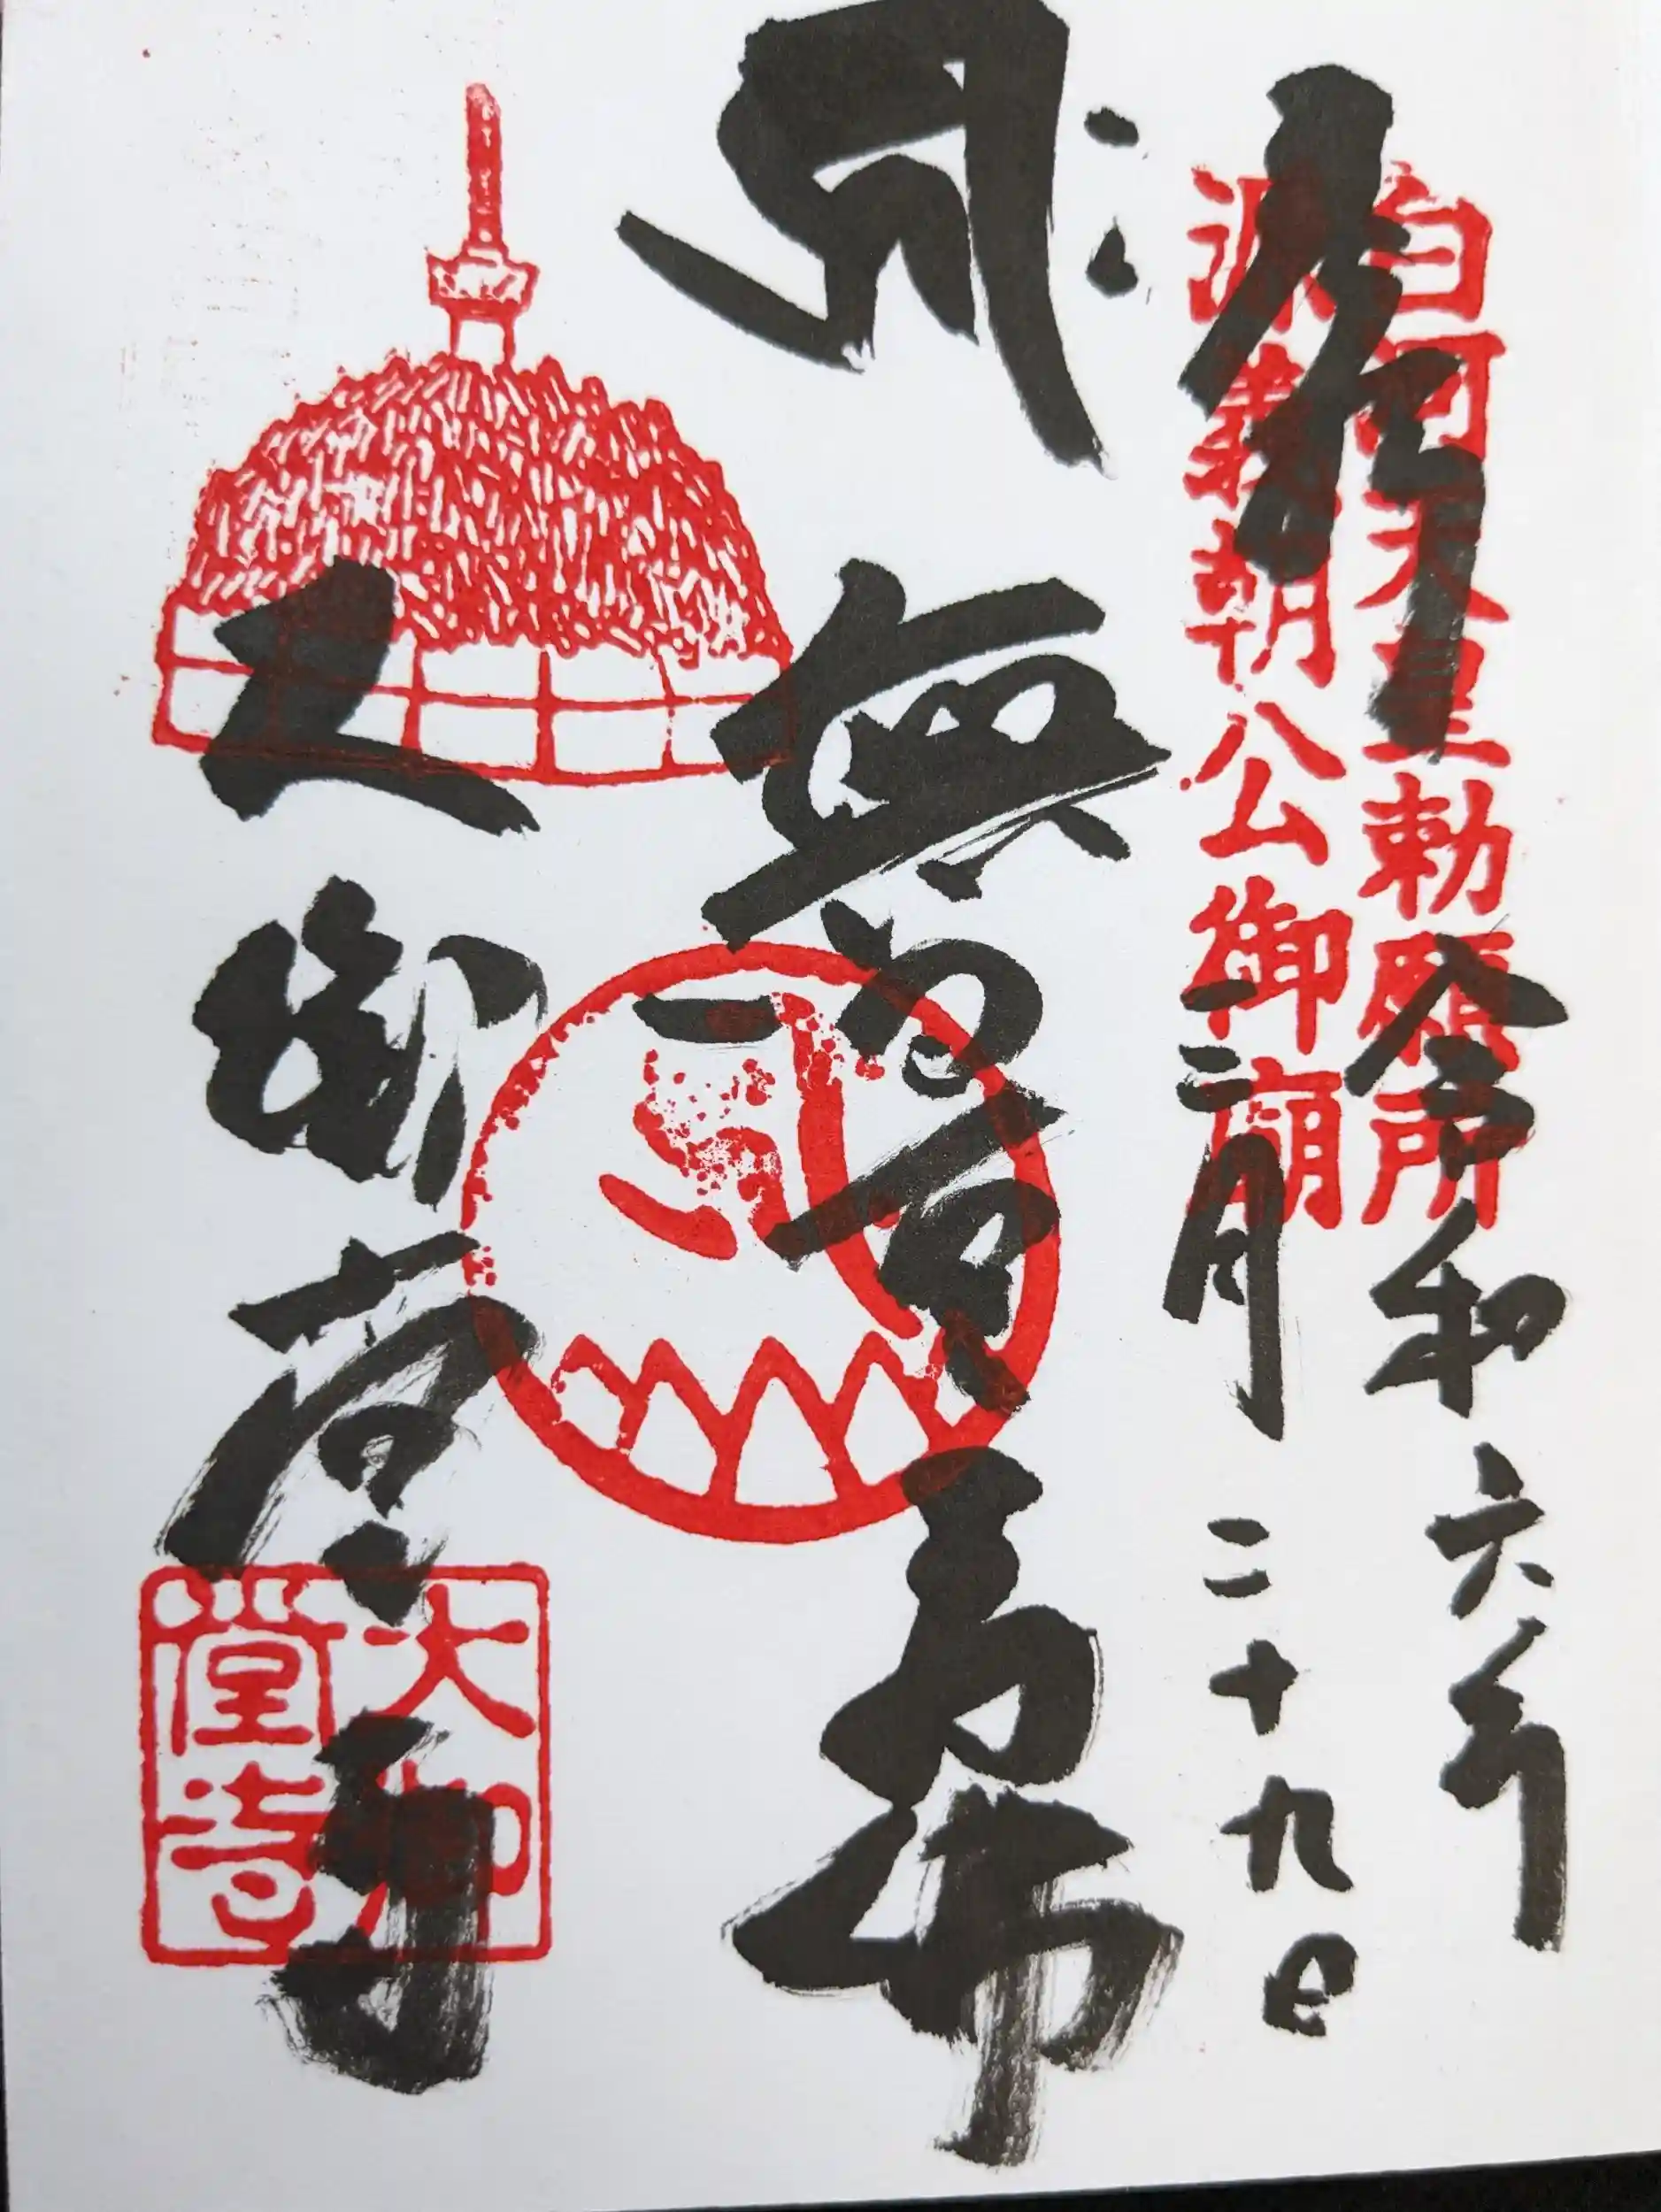 奉拝
白河天皇勅願所
源義朝公御廟
令和六年
三月二十九日
無量寿
大御堂寺
大御
堂寺